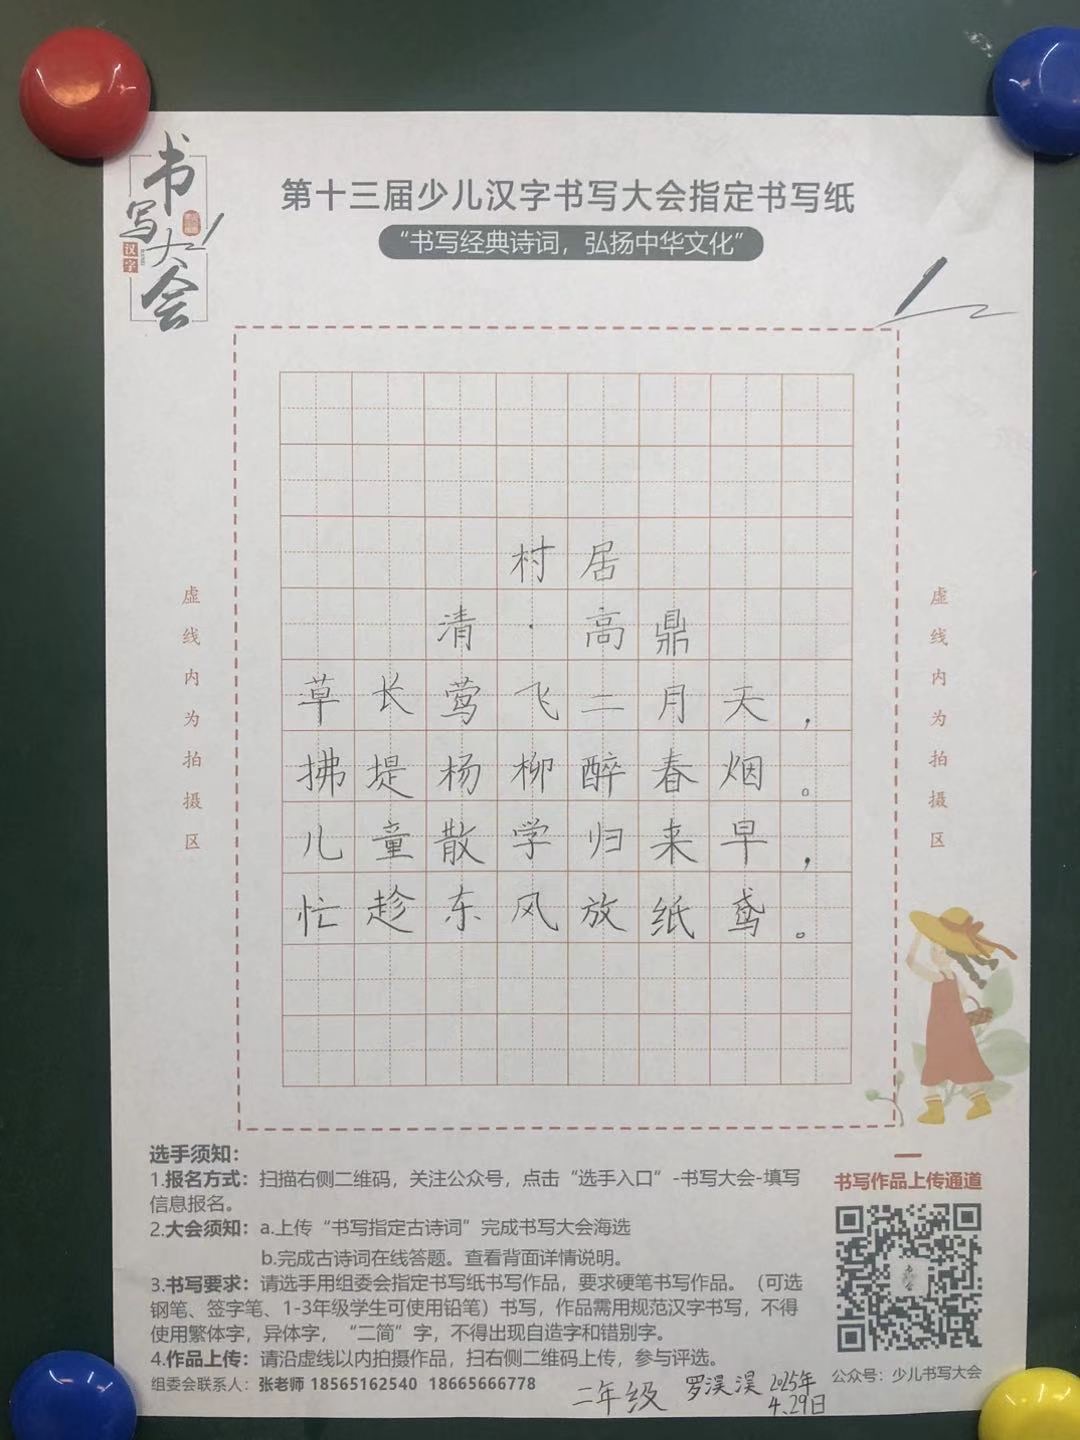 书写大会
汉字
第十三届少儿汉字书写大会指定书写纸
“书写经典诗词，弘扬中华文化”
虚线内为拍摄区
村居
清·高鼎
草长莺飞二月天，
拂堤杨柳醉春烟。
儿童散学归来早，
忙趁东风放纸鸢。
虚线内为拍摄区
选手须知：
1.报名方式：扫描右侧二维码，关注公众号，点击“选手入口”-书写大会-填写
信息报名。
2.大会须知：a.上传“书写指定古诗词”完成书写大会海选
b.完成古诗词在线答题。查看背面详情说明。
3.书写要求：请选手用组委会指定书写纸书写作品，要求硬笔书写作品。（可选
钢笔、签字笔、1-3年级学生可使用铅笔）书写，作品需用规范汉字书写，不得
使用繁体字，异体字，“二简”字，不得出现自造字和错别字。
4.作品上传：请沿虚线以内拍摄作品，扫右侧二维码上传，参与评选。
组委会联系人：张老师 18565162540 18665666778
书写作品上传通道
公众号：少儿书写大会
二年级 罗淏淏 2025年
4.29日